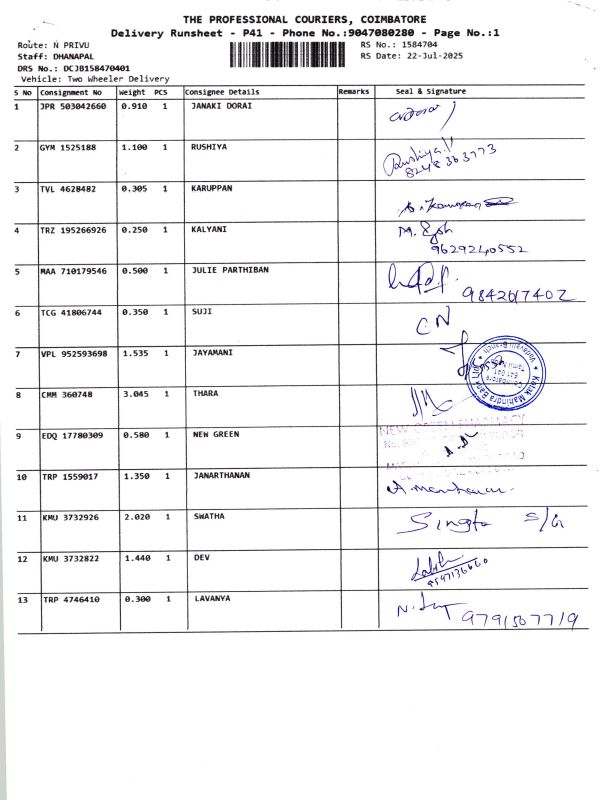 THE PROFESSIONAL COURIERS, COIMBATORE
Delivery Runsheet - P41 - Phone No.:9047080280 - Page No.:1
Route: N PRIVU RS No.: 1584704
Staff: DHANAPAL RS Date: 22-Jul-2025
DRS No.: DCJB158470401
Vehicle: Two Wheeler Delivery
S No Consignment No Weight PCS Consignee Details Remarks Seal & Signature
1 JPR 503042660 0.910 1 JANAKI DORAI
2 GYM 1525188 1.100 1 RUSHIYA Rushiya
8248363773
3 TVL 4628482 0.305 1 KARUPPAN
4 TRZ 195266926 0.250 1 KALYANI
9629240552
5 MAA 710179546 0.500 1 JULIE PARTHIBAN
9842617402
6 TCG 41806744 0.350 1 SUJI CN
7 VPL 952593698 1.535 1 JAYAMANI
Kotak Mahindra Bank Ltd
Vadavalli Branch
Coimbatore
641 041
Tamil Nadu
8 CMM 360748 3.045 1 THARA
9 EDQ 17780309 0.580 1 NEW GREEN NEW GREEN PHARMACY
10 TRP 1559017 1.350 1 JANARTHANAN
11 KMU 3732926 2.020 1 SWATHA S/G
12 KMU 3732822 1.440 1 DEV
13 TRP 4746410 0.300 1 LAVANYA
9791507719